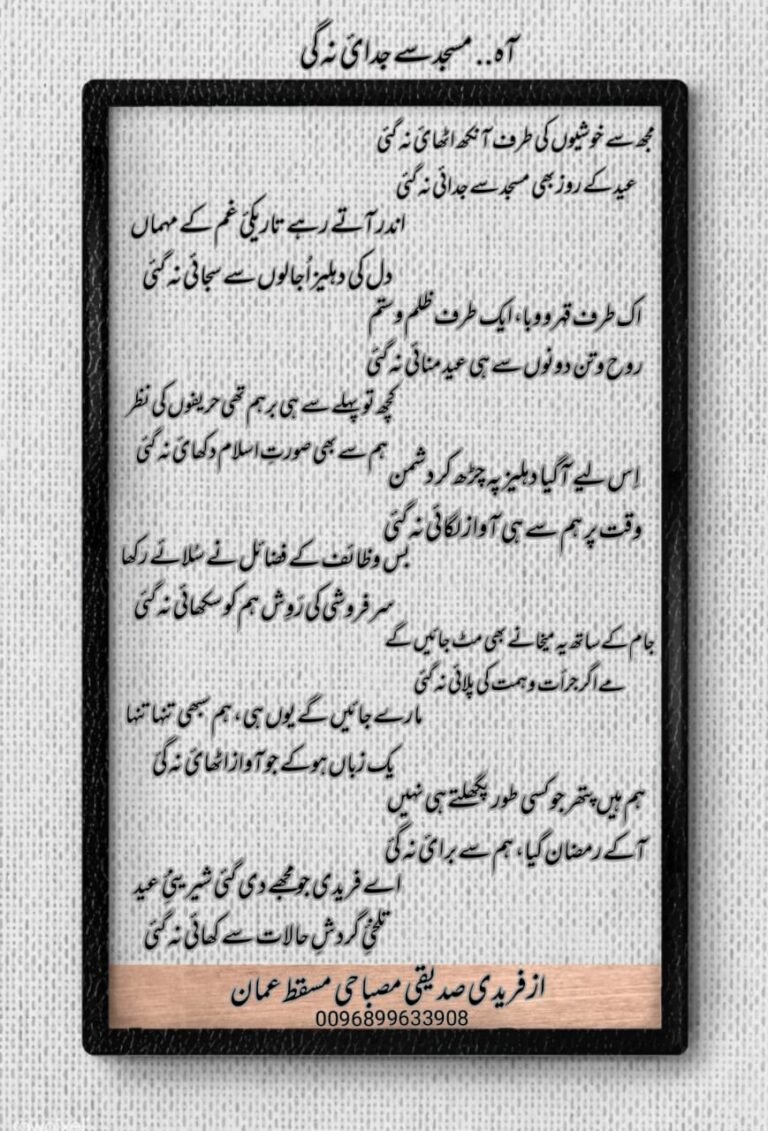 آہ.. مسجد سے جدائ نہ گی
مجھ سے خوشیوں کی طرف آنکھ اٹھائ نہ گئ
عید کے روز بھی مسجد سے جدائی نہ گئ
اندر آتے رہے تاریکئ غم کے مہماں
دل کی دہلیز اُجالوں سے سجائی نہ گئ
اک طرف قہر و وبا، ایک طرف ظلم و ستم
روح و تن دونوں سے ہی عید منائی نہ گئ
کچھ تو پہلے سے ہی برہم تھی حریفوں کی نظر
ہم سے بھی صورتِ اسلام دکھائ نہ گئ
اِس لیے آگیا دہلیز پہ چڑھ کر دشمن
وقت پر ہم سے ہی آواز لگائی نہ گئ
بس وظائف کے فضائل نے سُلائے رکھا
سر فروشی کی رَوِش ہم کو سکھائی نہ گئ
جام کے ساتھ یہ میخانے بھی مٹ جائیں گے
مے اگر جرأت و ہمت کی پلائی نہ گئ
مارے جائیں گے یوں ہی، ہم سبھی تنہا تنہا
یک زباں ہوکے جو آواز اٹھائ نہ گئ
ہم ہیں پتھر جو کسی طور پگھلتے ہی نہیں
آکے رمضان گیا، ہم سے برائ نہ گئ
اے فریدی جو مجھے دی گئ شیرینئِ عید
تلخئِ گردشِ حالات سے کھائی نہ گئ
از فریدی صدیقی مصباحی مسقط عمان
0096899633908